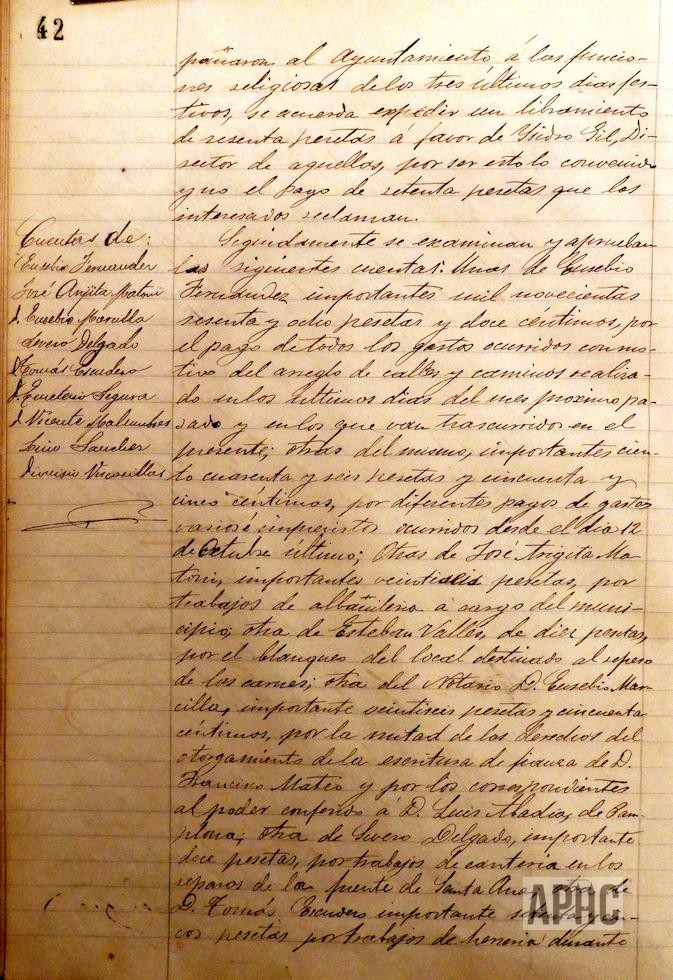 42
pañaron al Ayuntamiento, á las funcio-
nes religiosas de los tres últimos dias fes-
tivos, se acuerda expedir un libramiento
de sesenta pesetas á favor de Ysidro Gil, Di-
rector de aquellas, por ser esto lo convenido
y no el pago de setenta pesetas que los
interesados reclaman.
Cuentas de:
Eusebio Fernandez
José Angita Matoni
D. Eusebio Marcilla
Severo Delgado
D. Tomás Escudero
D. Emeterio Segura
D. Vicente
Lino Sanchez
Dionisio Viscasillas
Seguidamente se examinan y aprueban
las siguientes cuentas: Unas de Eusebio
Fernandez importantes mil novecientas
sesenta y ocho pesetas y doce centimos, por
el pago de todos los gastos ocurridos con mo-
tivo del arreglo de calles y caminos realiza-
do en los últimos dias del mes proximo pa-
sado y en los que van trascurridos en el
presente; otras del mismo, importantes cien-
to cuarenta y seis pesetas y cincuenta y
cinco céntimos, por diferentes pagos de gastos
varios é imprevistos ocurridos desde el dia 12
de Octubre último; Otras de José Angita Ma-
toni, importantes veintiseis pesetas, por
trabajos de albañileria a cargo del muni-
cipio; otra de Esteban Valles, de diez pesetas,
por el blanqueo del local destinado al repeso
de las carnes; otra del Notario D. Eusebio Mar-
cilla, importante veintiseis pesetas y cincuenta
céntimos, por la mitad de los derechos del
otorgamiento de la escritura de fianza de D.
Francisco Mateo y por los correspondientes
al poder conferido á D. Luis Abadia, de Pam-
plona; otra de Severo Delgado, importante
doce pesetas, por trabajos de canteria en los
reparos de la fuente de Santa Ana; otra de
D. Tomás Escudero importante setenta y cin-
cos pesetas por trabajos de herreria durante
APHC